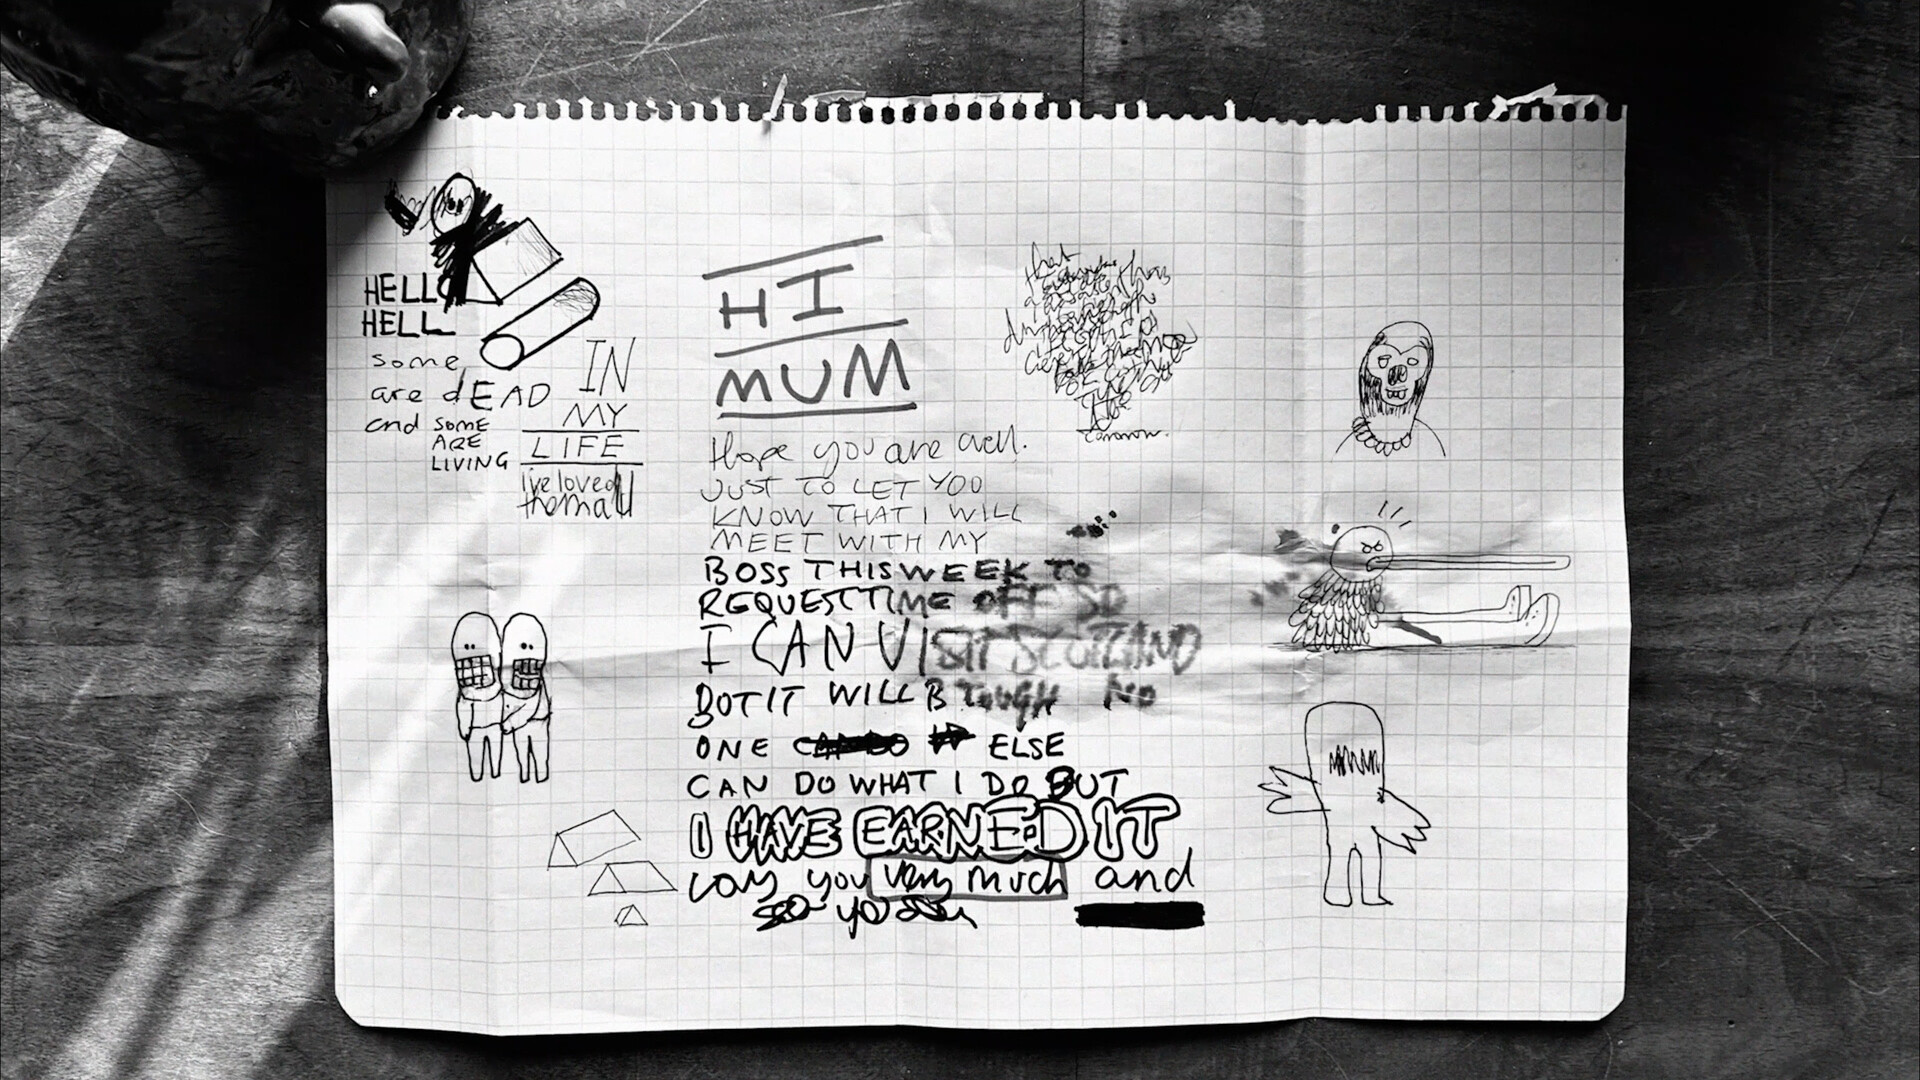 HELLO
HELL
some
are dEAD
and SOME
ARE
LIVING
IN
MY
LIFE
i've loved
them all
HI
MUM
Hope you are well.
JUST TO LET YOU
KNOW THAT I WILL
MEET WITH MY
BOSS THIS WEEK TO
REQUEST TIME OFF SO
I CAN VISIT SCOTLAND
BOT IT WILL B TOUGH NO
ONE ELSE
CAN DO WHAT I DO BUT
I HAVE EARNED IT
LOVE you very much and
see you soon